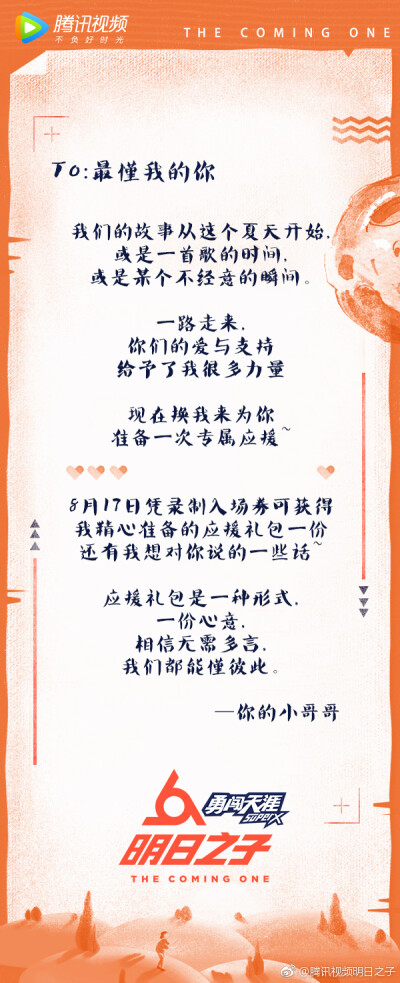 腾讯视频
不负好时光
THE COMING ONE
To:最懂我的你
我们的故事从这个夏天开始,
或是一首歌的时间,
或是某个不经意的瞬间。
一路走来,
你们的爱与支持
给予了我很多力量
现在换我来为你
准备一次专属应援~
8月17日凭录制入场券可获得
我精心准备的应援礼包一份
还有我想对你说的一些话~
应援礼包是一种形式,
一份心意,
相信无需多言,
我们都能懂彼此。
—你的小哥哥
勇闯天涯
superX
明日之子
THE COMING ONE
@腾讯视频明日之子